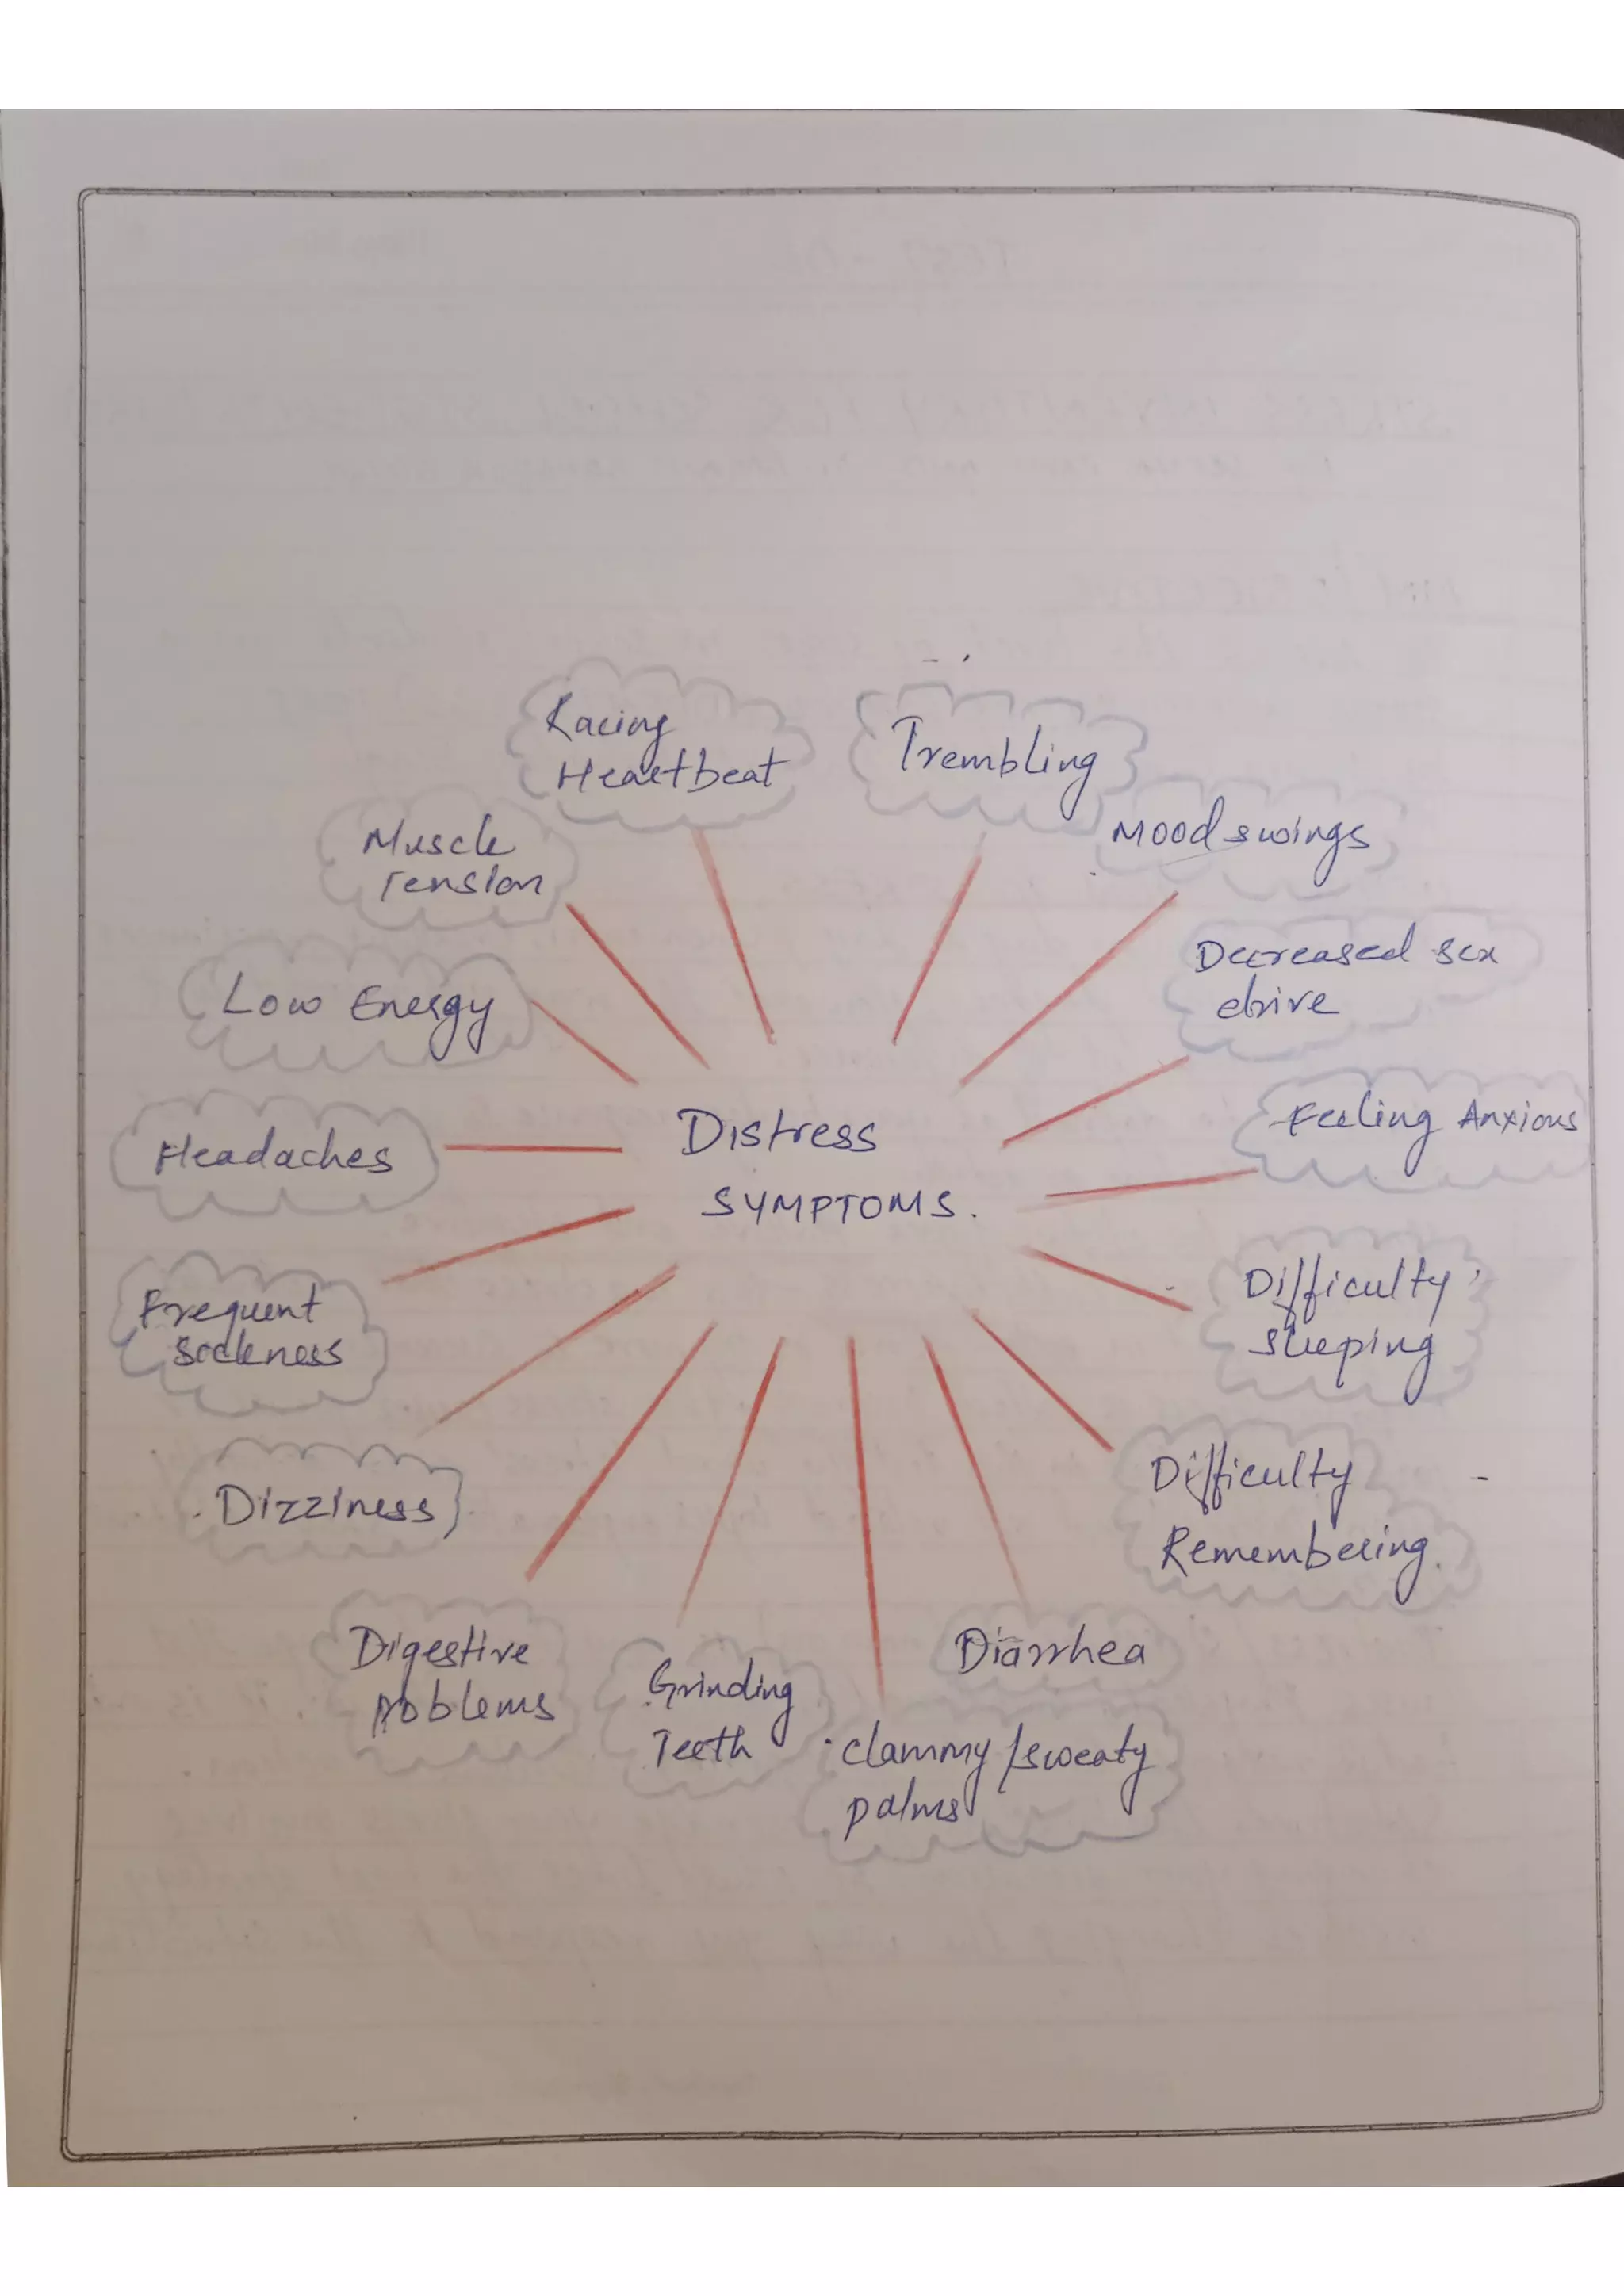 Racing
Heartbeat
Trembling
Mood swings
Muscle
Tension
Decreased sex
drive
Low Energy
Feeling Anxious
Headaches
Distress
SYMPTOMS.
Difficulty
sleeping
Frequent
sickness
Difficulty
Remembering.
Dizziness
Digestive
Problems
Grinding
Teeth
Diarrhea
clammy/sweaty
palms